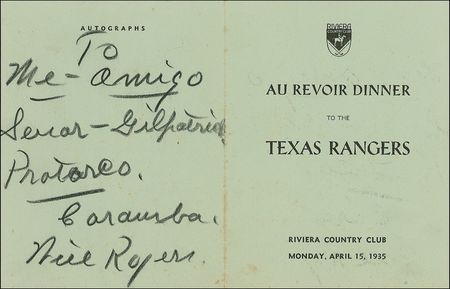 AUTOGRAPHS
To
Me - Amigo
Senor - Gilpatric
Protarco.
Caramba.
Will Rogers.
RIVIERA
COUNTRY CLUB
AU REVOIR DINNER
TO THE
TEXAS RANGERS
RIVIERA COUNTRY CLUB
MONDAY, APRIL 15, 1935